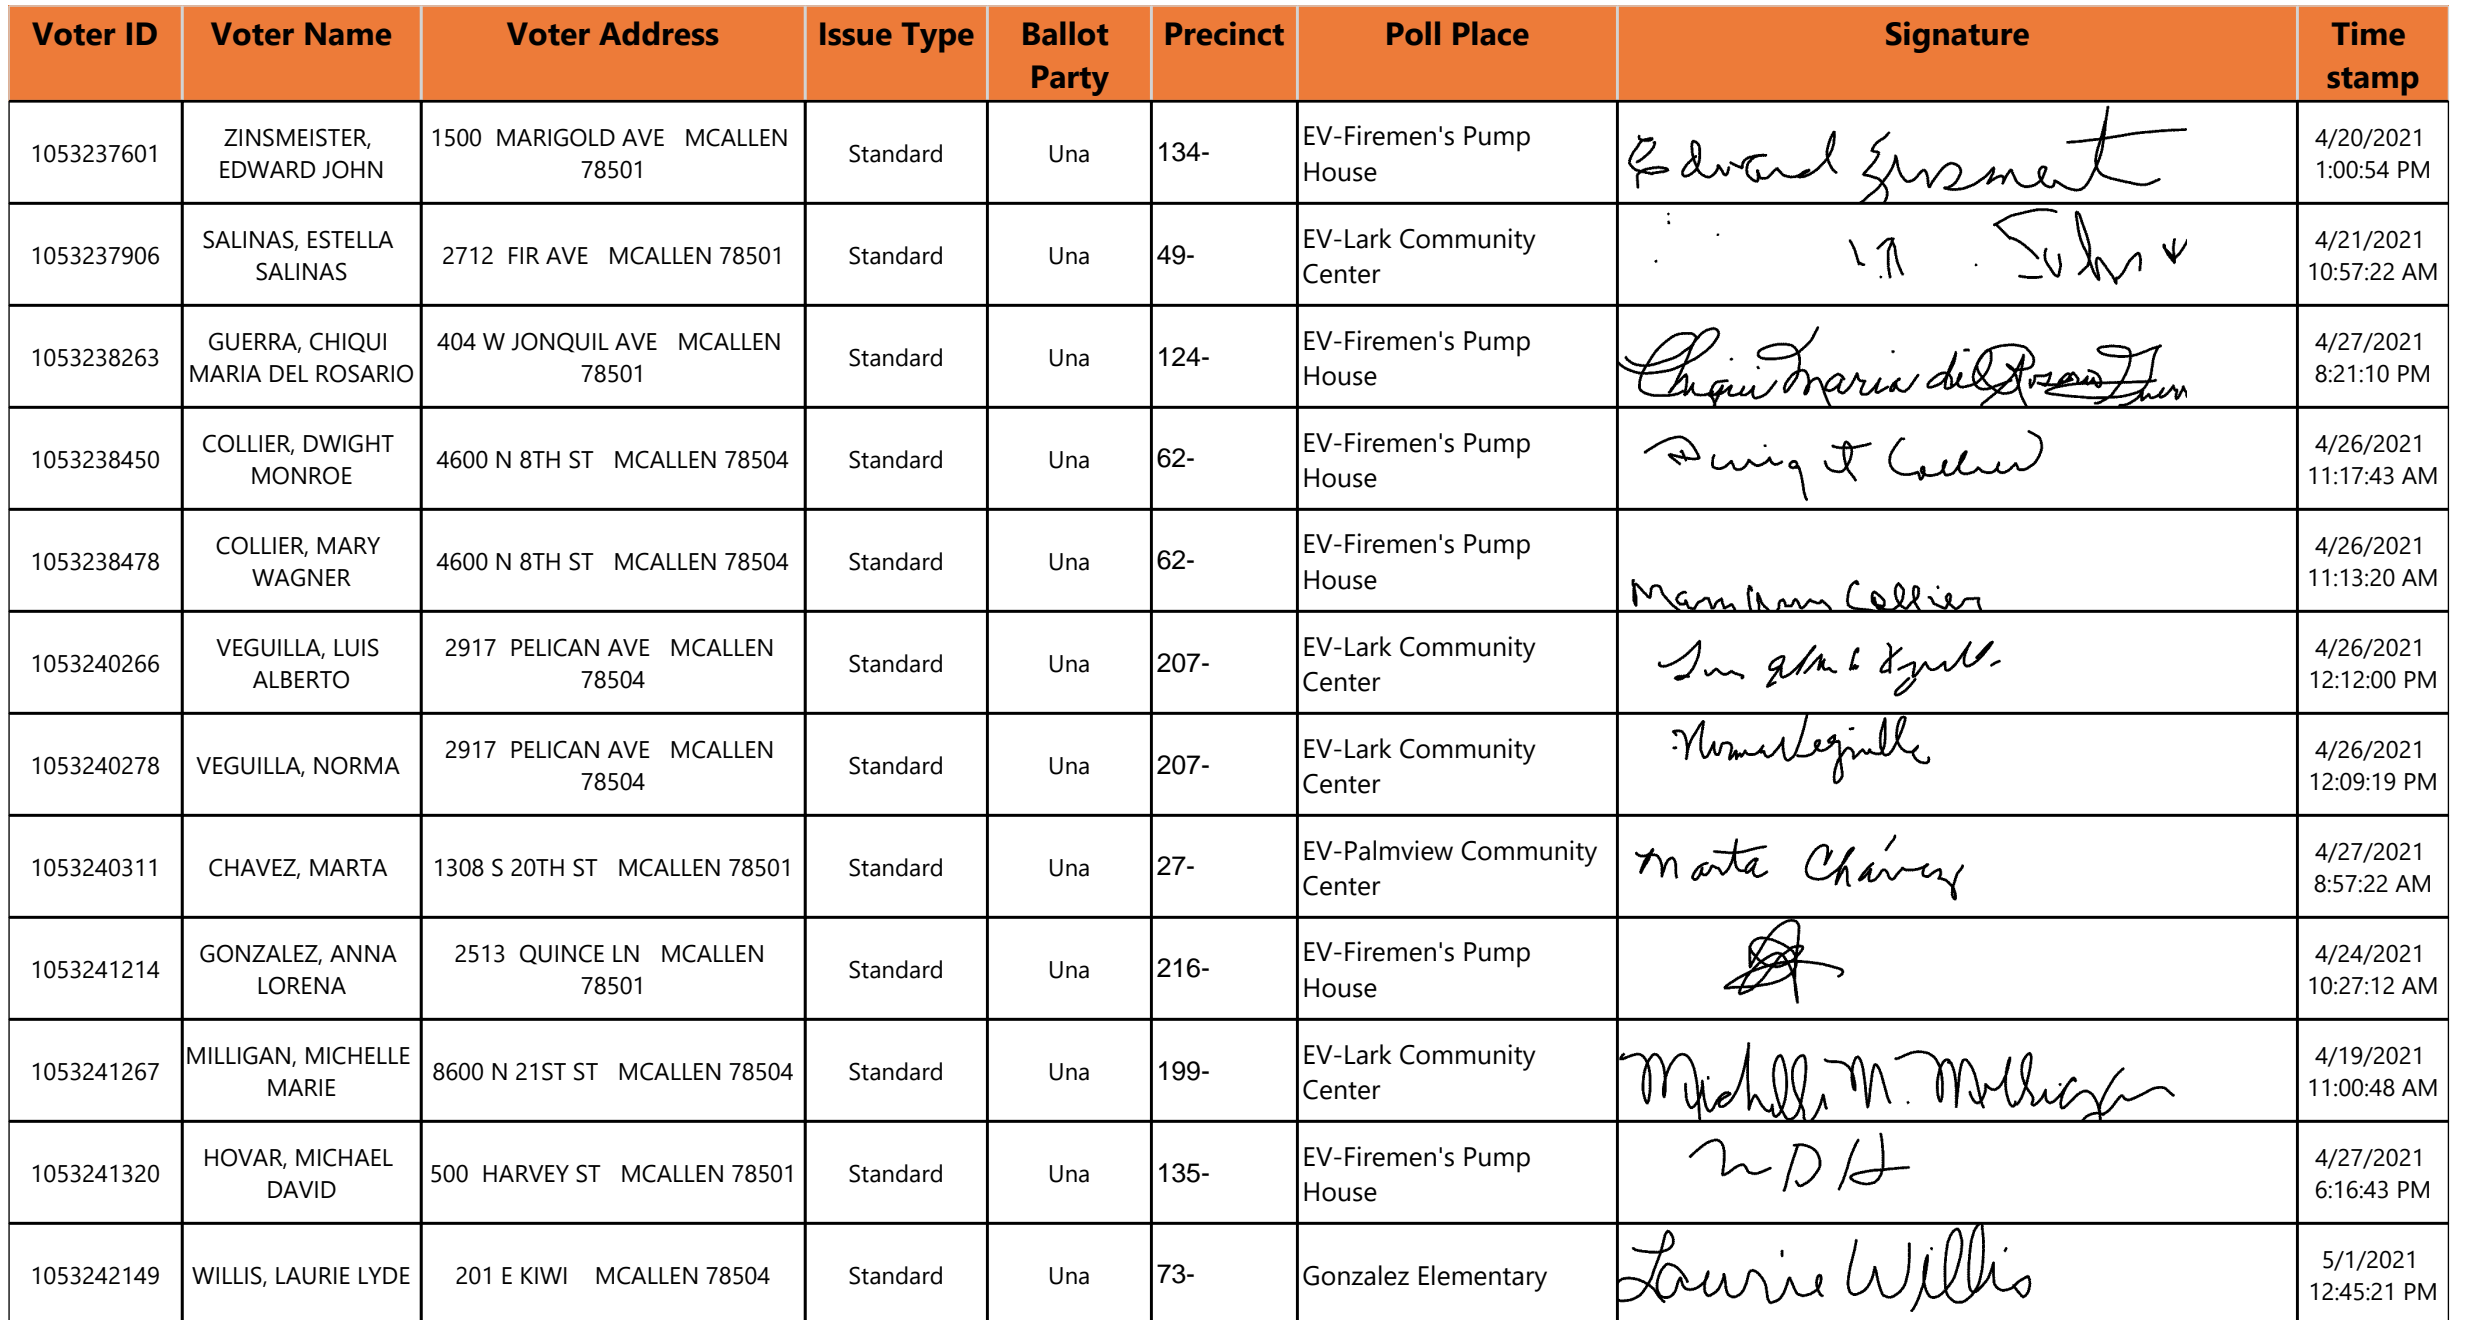 Voter ID Voter Name Voter Address Issue Type Ballot Party Precinct Poll Place Signature Time stamp
1053237601 ZINSMEISTER, EDWARD JOHN 1500 MARIGOLD AVE MCALLEN 78501 Standard Una 134- EV-Firemen's Pump House Edward 4/20/2021 1:00:54 PM
1053237906 SALINAS, ESTELLA SALINAS 2712 FIR AVE MCALLEN 78501 Standard Una 49- EV-Lark Community Center 4/21/2021 10:57:22 AM
1053238263 GUERRA, CHIQUI MARIA DEL ROSARIO 404 W JONQUIL AVE MCALLEN 78501 Standard Una 124- EV-Firemen's Pump House Chiqui Maria del Rosario 4/27/2021 8:21:10 PM
1053238450 COLLIER, DWIGHT MONROE 4600 N 8TH ST MCALLEN 78504 Standard Una 62- EV-Firemen's Pump House Collier 4/26/2021 11:17:43 AM
1053238478 COLLIER, MARY WAGNER 4600 N 8TH ST MCALLEN 78504 Standard Una 62- EV-Firemen's Pump House Collier 4/26/2021 11:13:20 AM
1053240266 VEGUILLA, LUIS ALBERTO 2917 PELICAN AVE MCALLEN 78504 Standard Una 207- EV-Lark Community Center 4/26/2021 12:12:00 PM
1053240278 VEGUILLA, NORMA 2917 PELICAN AVE MCALLEN 78504 Standard Una 207- EV-Lark Community Center Norma Veguilla 4/26/2021 12:09:19 PM
1053240311 CHAVEZ, MARTA 1308 S 20TH ST MCALLEN 78501 Standard Una 27- EV-Palmview Community Center Marta Chávez 4/27/2021 8:57:22 AM
1053241214 GONZALEZ, ANNA LORENA 2513 QUINCE LN MCALLEN 78501 Standard Una 216- EV-Firemen's Pump House 4/24/2021 10:27:12 AM
1053241267 MILLIGAN, MICHELLE MARIE 8600 N 21ST ST MCALLEN 78504 Standard Una 199- EV-Lark Community Center Michelle M. Milligan 4/19/2021 11:00:48 AM
1053241320 HOVAR, MICHAEL DAVID 500 HARVEY ST MCALLEN 78501 Standard Una 135- EV-Firemen's Pump House M D H 4/27/2021 6:16:43 PM
1053242149 WILLIS, LAURIE LYDE 201 E KIWI MCALLEN 78504 Standard Una 73- Gonzalez Elementary Laurie Willis 5/1/2021 12:45:21 PM